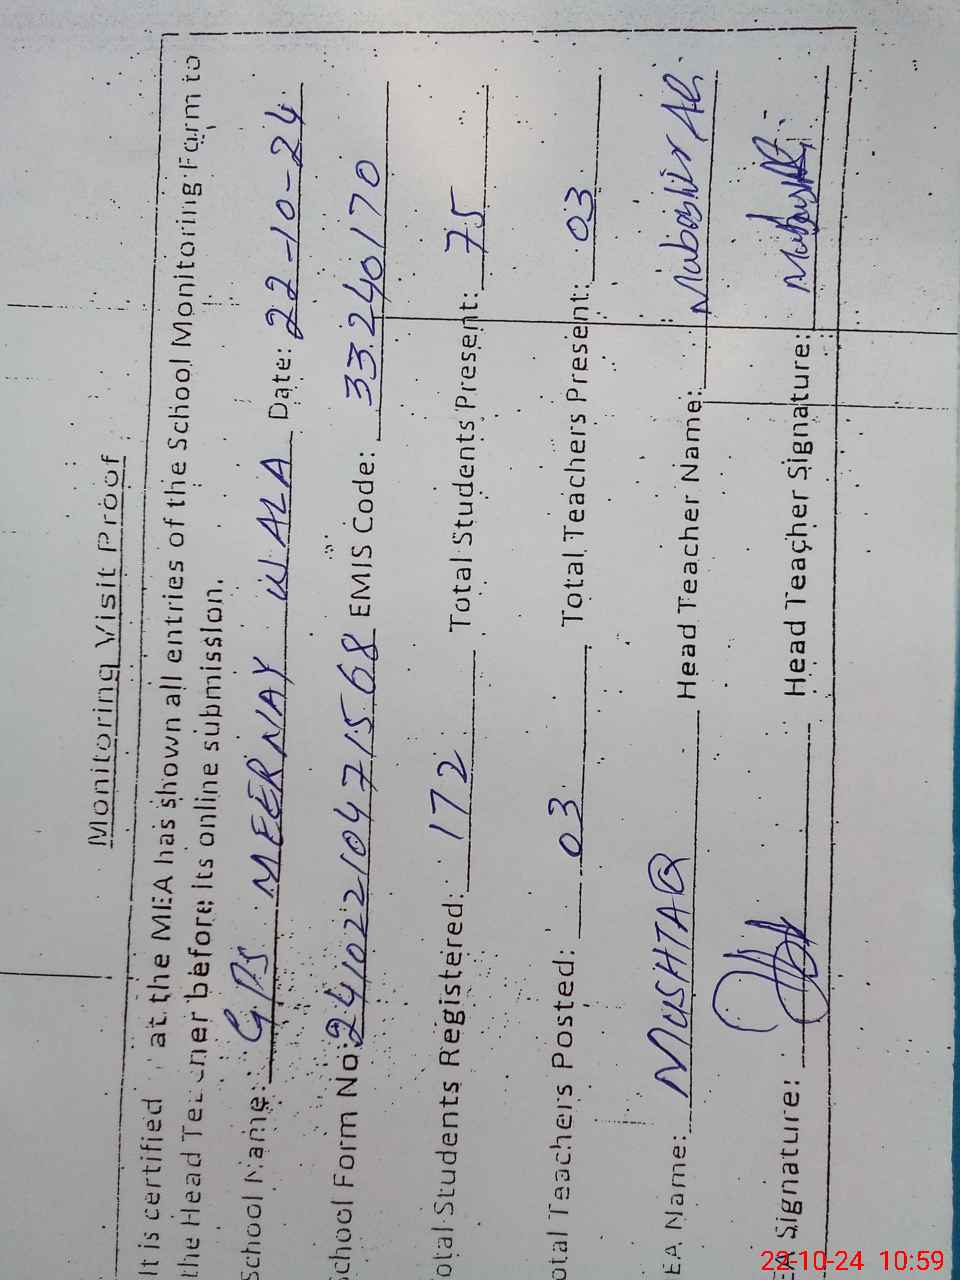 Monitoring Visit Proof
It is certified at the MEA has shown all entries of the School Monitoring Form to
the Head before its online submission.
School Name: GPS MEERNAY WALA Date: 22-10-24
School Form No: 24102210471568 EMIS Code: 33240170
otal Students Registered: 172 Total Students Present: 75
otal Teachers Posted: 03 Total Teachers Present: 03
EA Name: MUSHTAQ Head Teacher Name: Mubashir Ali
EA Signature: Head Teacher Signature:
22-10-24 10:59